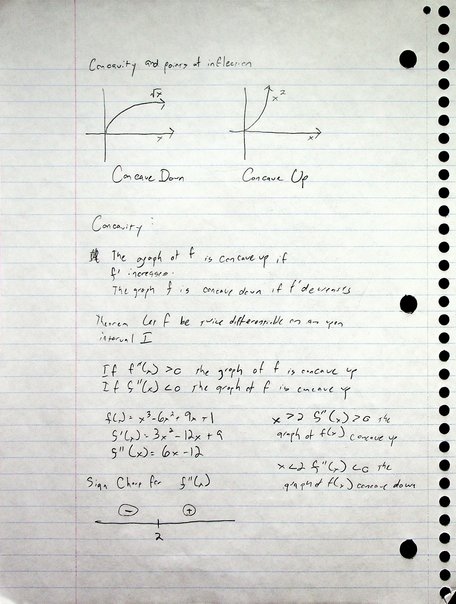 Concavity and points of inflection
√x
x
Concave Down
x²
x
Concave Up
Concavity :
The graph of f is concave up if
f' increases.
The graph f is concave down if f' decreases
Theorem Let f be twice differentiable on an open
interval I
If f''(x) >0 the graph of f is concave up
If f''(x) <0 the graph of f is concave up
f(x) = x³-6x²+9x+1
f'(x) = 3x²-12x+9
f''(x) = 6x-12
x>2 f''(x)>0 the
graph of f(x) concave up
x<2 f''(x) <0 the
graph of f(x) concave down
Sign Chart for f''(x)
- +
2